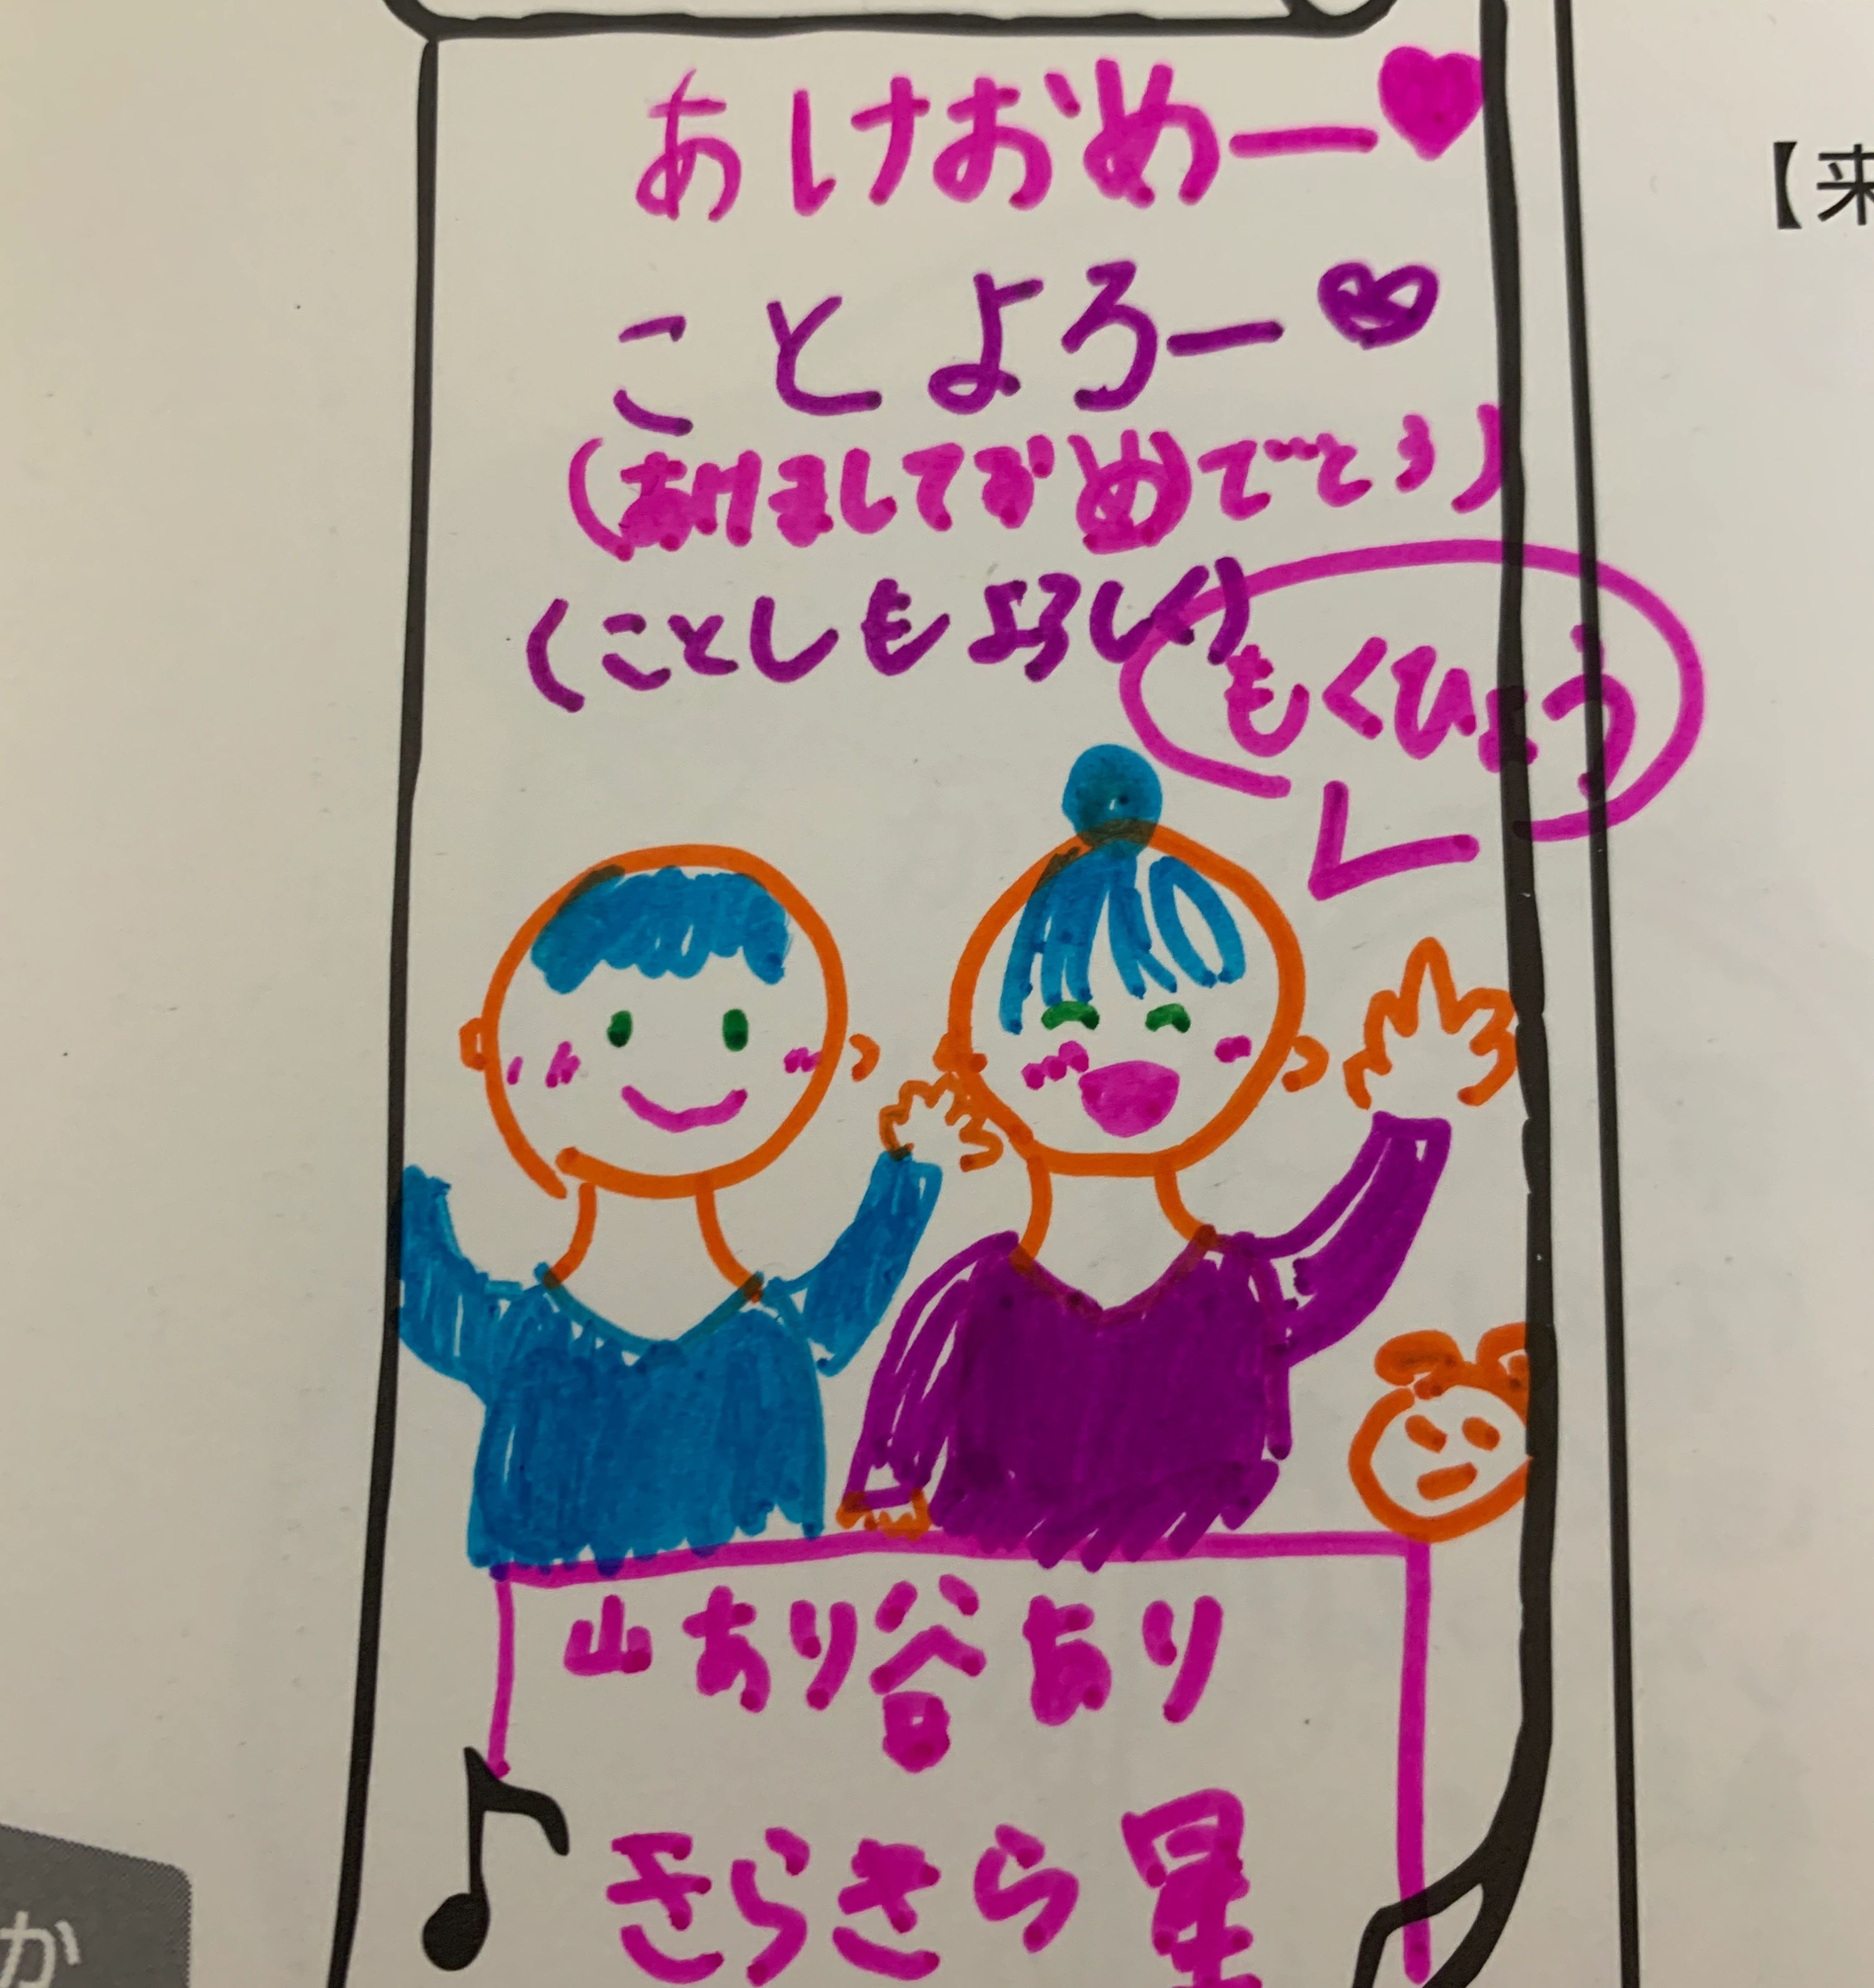 あけおめー♥
ことよろー♥
(あけましておめでとう)
(ことしもよろしく)
もくひょう
山あり谷あり
きらきら星
【来
か